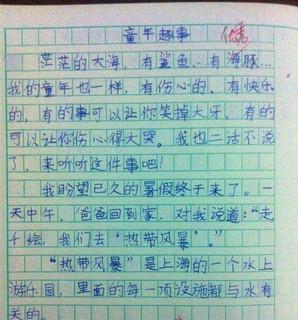 童年趣事
茫茫的大海，有鲨鱼、有海豚…
我的童年也一样，有伤心的、有快乐
的，有的事可以让你笑掉大牙，有的
可以让你伤心得大哭。我也二话不说
了，来听听这件事吧！
我盼望已久的暑假终于来了。一
天中午，爸爸回到家，对我说道：“走
千绘，我们去‘热带风暴’。”
“热带风暴”是上海的一个水上
游乐园，里面的每一项设施都与水有
关的。